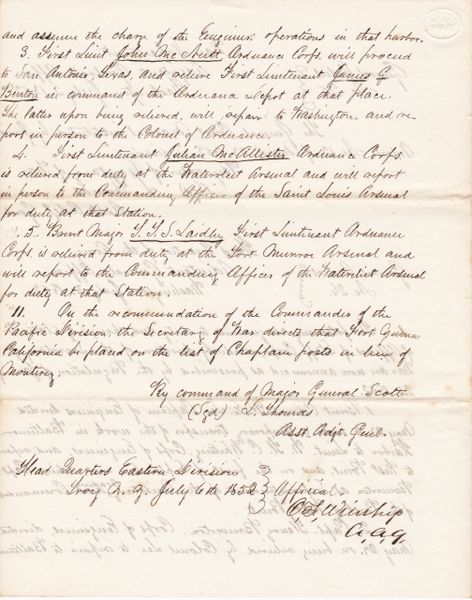 and assume the charge of the Engineer operations in that harbor.
3. First Lieut John McNutt, Ordnance Corps. will proceed
to San Antonio, Texas, and relieve First Lieutenant James G
Benton in command of the Ordnance Depot at that place.
The latter upon being relieved, will repair to Washington and re
port in person to the Colonel of Ordnance.
4. First Lieutenant Julian McAllister Ordnance Corps
is relieved from duty at the Watervliet Arsenal and will report
in person to the Commanding Officer of the Saint Louis Arsenal
for duty at that Station.
5. Brevt Major T. T. S. Laidley, First Lieutenant Ordnance
Corps. is relieved from duty at the Fort Monroe Arsenal and
will report to the Commanding Officer of the Watervliet Arsenal
for duty at that Station.
11. On the recommendation of the Commander of the
Pacific Division. the Secretary of War directs that Fort
California be placed on the list of Chaplain posts in lieu of
Monterey.
By command of Major General Scott
(Sgd) L. Thomas
Asst. Adjt. Genl.
Head Quarters Eastern Division
Troy N. Y. July 6th 1852 Official.
O. F. Winship
A. A. G.